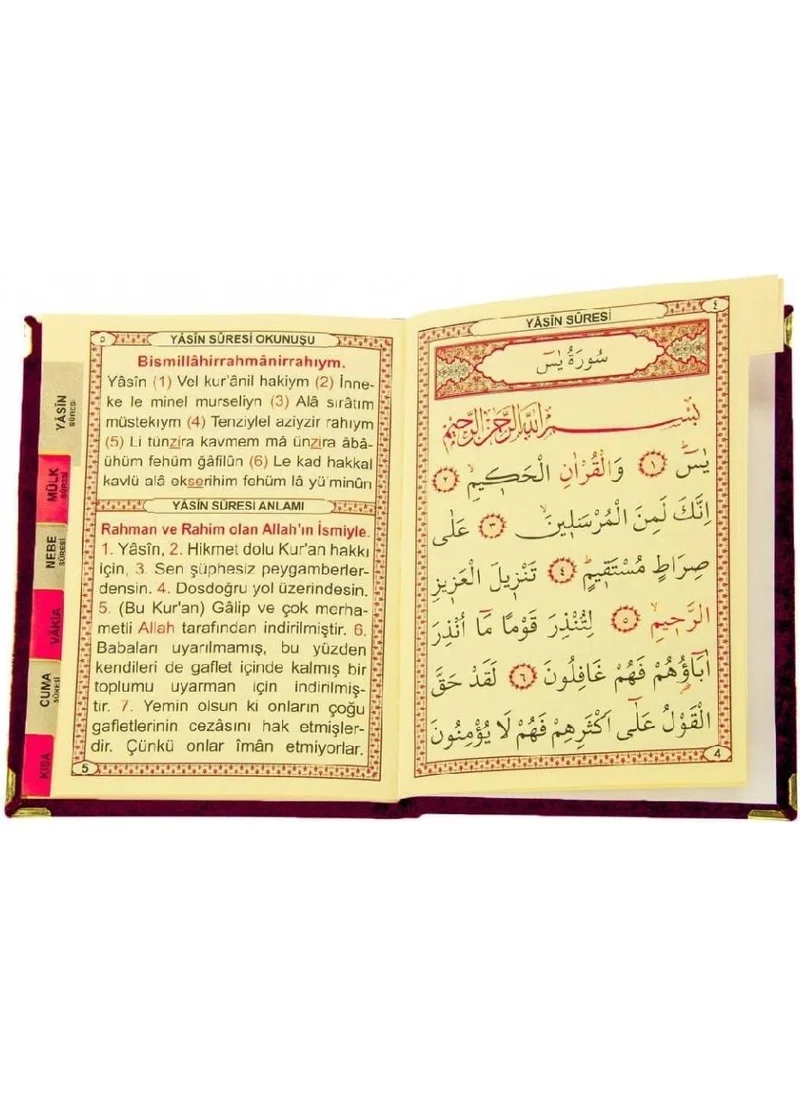 YÂSÎN SÛRESİ
٤
سُورَةُ يٰسٓ
بِسْمِ اللّٰهِ الرَّحْمٰنِ الرَّحِيمِ
يٰسٓ ﴿١﴾ وَالْقُرْاٰنِ الْحَكِيمِۙ ﴿٢﴾
اِنَّكَ لَمِنَ الْمُرْسَلِينَۙ ﴿٣﴾ عَلٰى
صِرَاطٍ مُسْتَقِيمٍۜ ﴿٤﴾ تَنْزِيلَ الْعَزِيزِ
الرَّحِيمِۙ ﴿٥﴾ لِتُنْذِرَ قَوْمًا مَٓا اُنْذِرَ
اٰبَٓاؤُ۬هُمْ فَهُمْ غَافِلُونَ ﴿٦﴾ لَقَدْ حَقَّ
الْقَوْلُ عَلٰٓى اَكْثَرِهِمْ فَهُمْ لَا يُؤْمِنُونَ
4
٥
YÂSÎN SÛRESİ OKUNUŞU
Bismillâhirrahmânirrahıym.
Yâsîn (1) Vel kur'ânil hakiym (2) İnne-
ke le minel murseliyn (3) Alâ sırâtım
müstekıym (4) Tenziylel aziyzir rahıym
(5) Li tünzira kavmem mâ ünzira âbâ-
ühüm fehüm ğâfilûn (6) Le kad hakkal
kavlü alâ ekserihim fehüm lâ yü'minûn
YÂSÎN SÛRESİ ANLAMI
Rahman ve Rahim olan Allah'ın İsmiyle.
1. Yâsîn, 2. Hikmet dolu Kur'an hakkı
için, 3. Sen şüphesiz peygamberler-
densin. 4. Dosdoğru yol üzerindesin.
5. (Bu Kur'an) Gâlip ve çok merha-
metli Allah tarafından indirilmiştir. 6.
Babaları uyarılmamış, bu yüzden
kendileri de gaflet içinde kalmış bir
toplumu uyarman için indirilmiş-
tir. 7. Yemin olsun ki onların çoğu
gafletlerinin cezâsını hak etmişler-
dir. Çünkü onlar îmân etmiyorlar.
5
YÂSÎN
SÛRESİ
MÜLK
SÛRESİ
NEBE
SÛRESİ
VÂKIA
CUMA
SÛRESİ
KISA